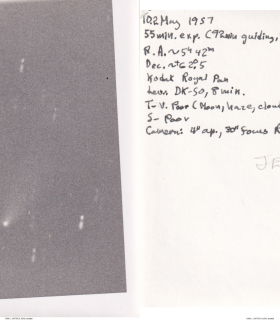 1/2 May 1957
55 min. exp. (92 min guiding,
R.A. ~ 5h 42m
Dec. ~ +62°.5
Kodak Royal Pan
Dev. DK-50, 8 min.
T - V. Poor (Moon, haze, cloud
S - Poor
Camera: 4" ap., 30" focus R
JE